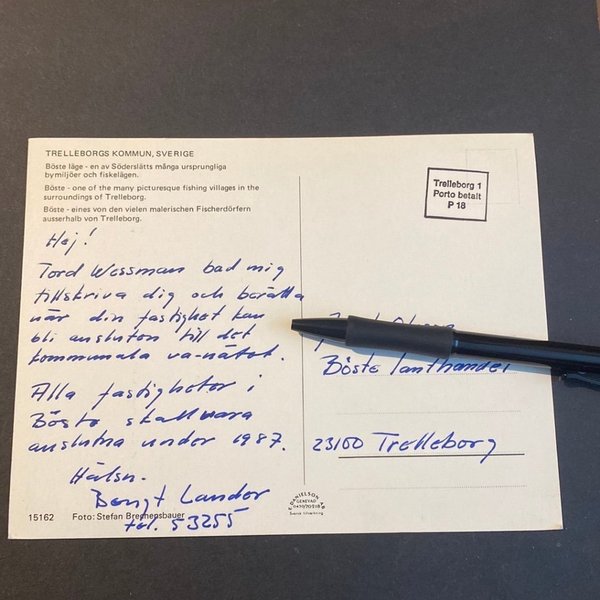 TRELLEBORGS KOMMUN, SVERIGE
Böste läge - en av Söderslätts många ursprungliga
bymiljöer och fiskelägen.
Böste - one of the many picturesque fishing villages in the
surroundings of Trelleborg.
Böste - eines von den vielen malerischen Fischerdörfern
ausserhalb von Trelleborg.
Hej!
Tord Wessman bad mig
tillskriva dig och berätta
när din fastighet kan
bli ansluten till det
kommunala va-nätet.
Alla fastigheter i
Böste skall vara
anslutna under 1987.
Hälsn.
Bengt Lander
tel. 53255
15162 Foto: Stefan Brechensbauer
Trelleborg 1
Porto betalt
P 18
Böste lanthandel
23100 Trelleborg
E. DANIELSON